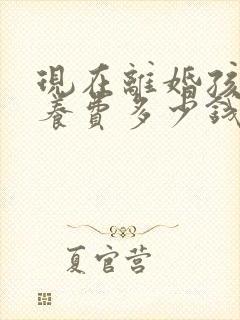 現在離婚孩
養費多少錢
夏官营